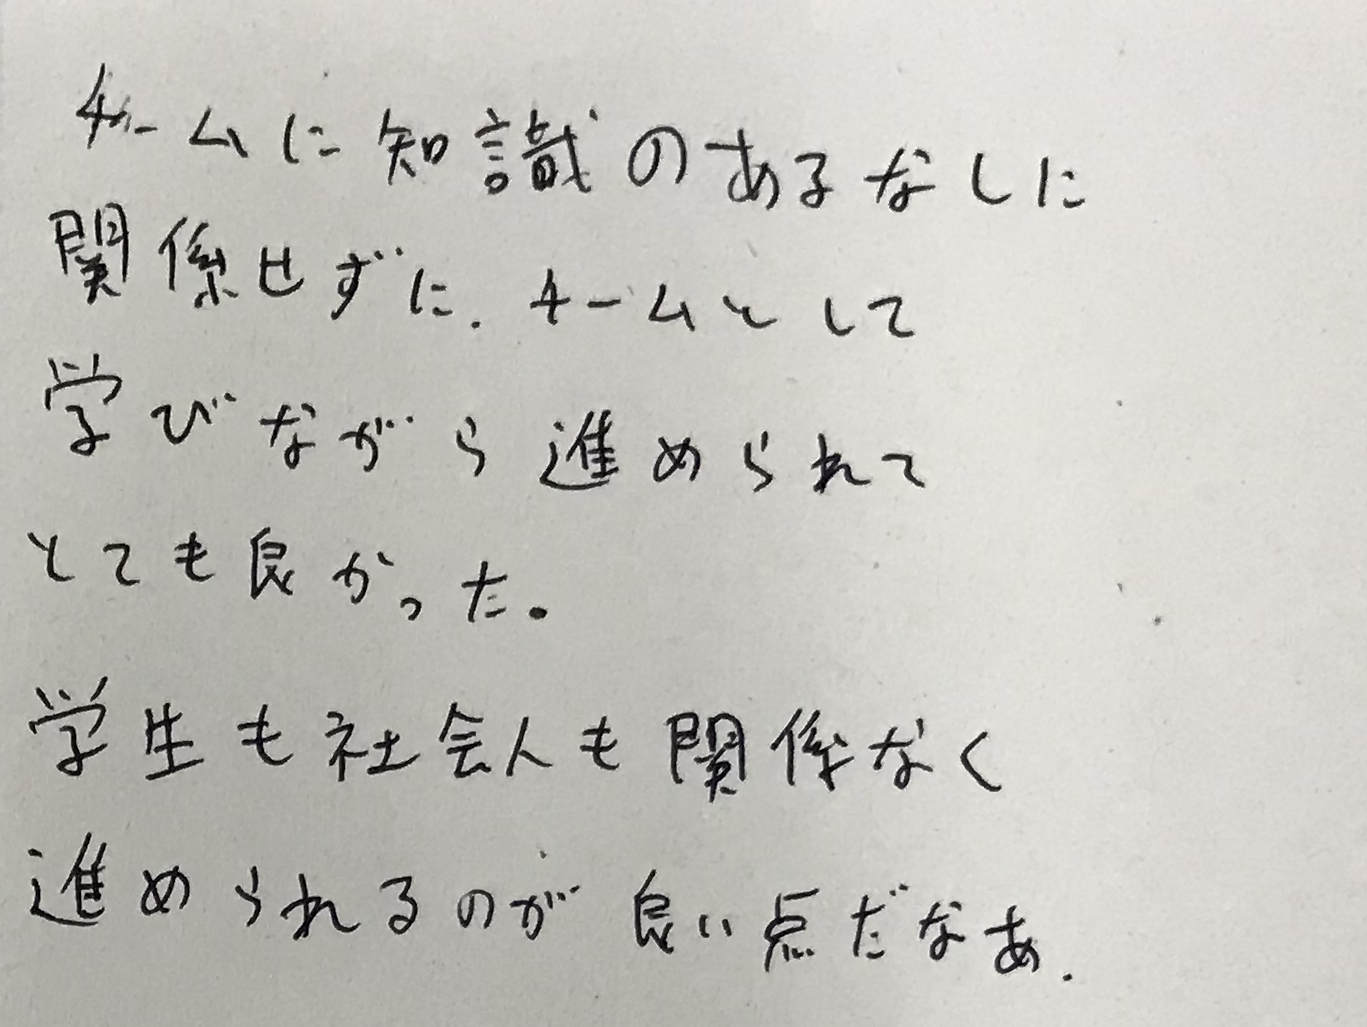 チームに知識のあるなしに
関係せずに.チームとして
学びながら進められて
とても良かった。
学生も社会人も関係なく
進められるのが良い点だなあ.